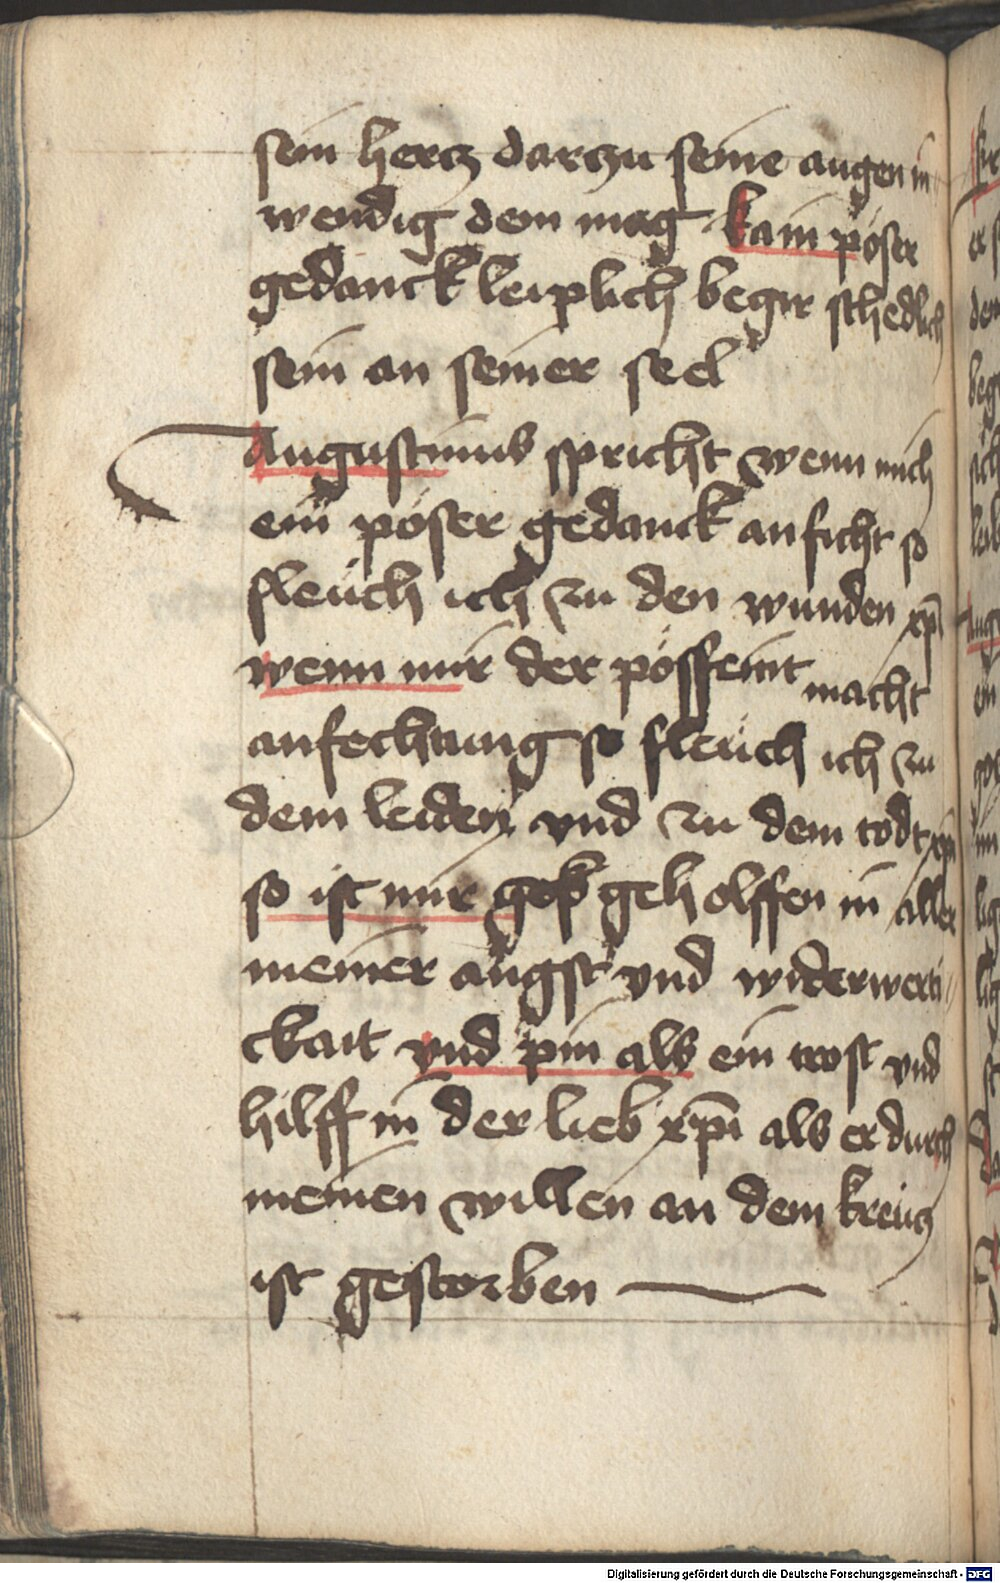 sein hercz darczu seine augen in
wendig dem mag kain pöser
gedanck leiplich begir schedlich
sein an seiner sel
Augustinus spricht wenn mich
ein pöser gedanck anficht so
fleuch ich zu den wunden xpi
wenn mir der pössfeint macht
anfechtung so fleuch ich zu
dem leiden vnd zu dem todt xpi
so ist mir geholffen in aller
meiner angst vnd widerwerti
ckait vnd pin als ein trost vnd
hilff in der lieb xpi als er durch
meinen willen an dem kreucz
ist gestorben
Digitalisierung gefördert durch die Deutsche Forschungsgemeinschaft - DFG